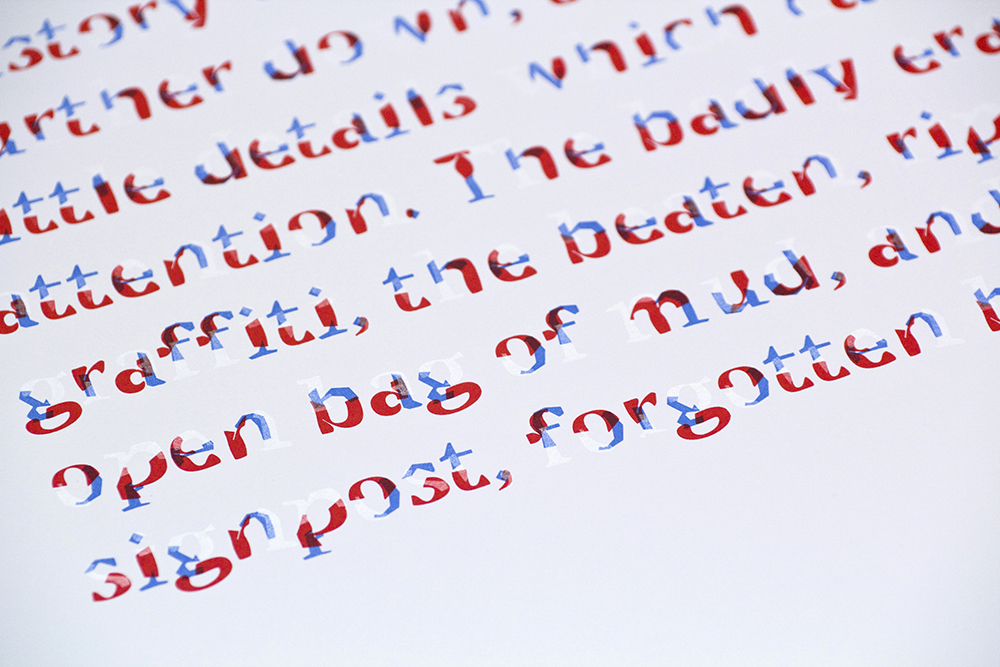 story
further down,
little details which
attention. The badly
graffiti, the beaten,
open bag of mud, and
signpost, forgotten